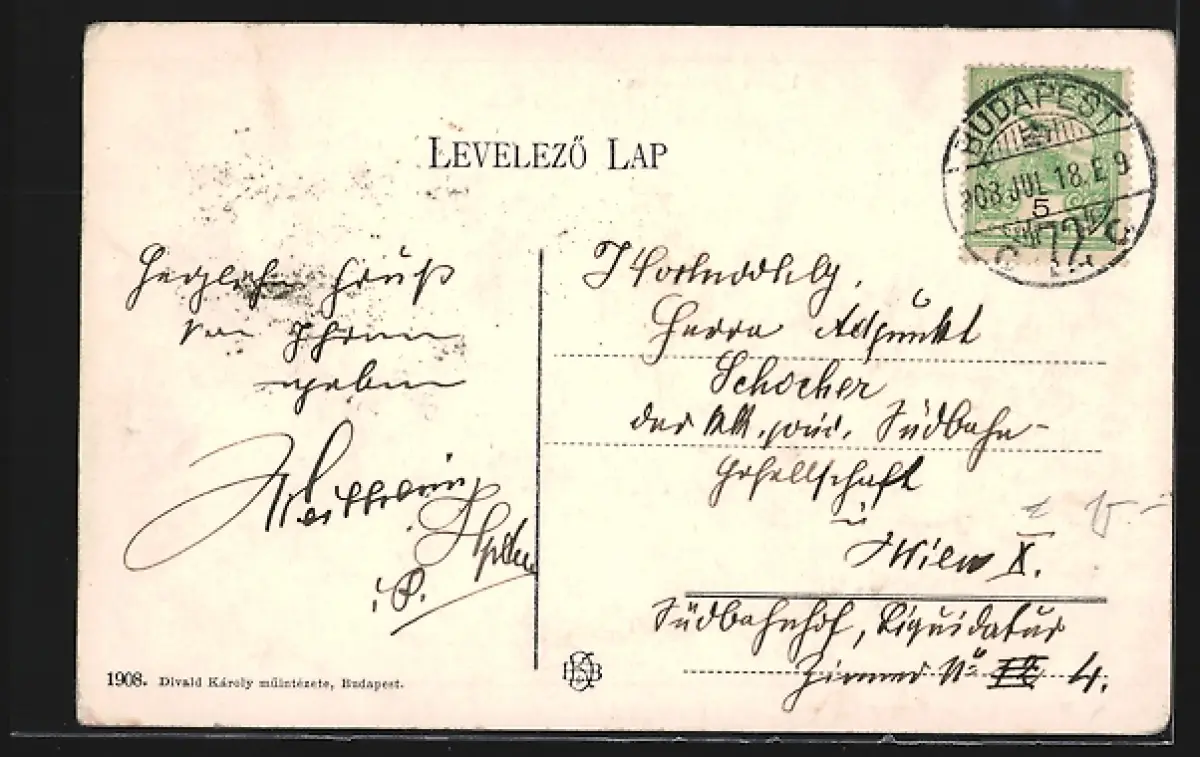 LEVELEZŐ LAP
BUDAPEST
908 JUL 18. E 9
5
72
Herzliche Gruß
von Ihrem
ergebenen
i. P.
Wohlgeb.
Herrn Adjunkt
Schocher
der kk. priv. Südbahn-
Gesellschaft
in
Wien X.
Südbahnhof, Liquidatur
Zimmer No 4.
1908. Divald Károly műintézete, Budapest.